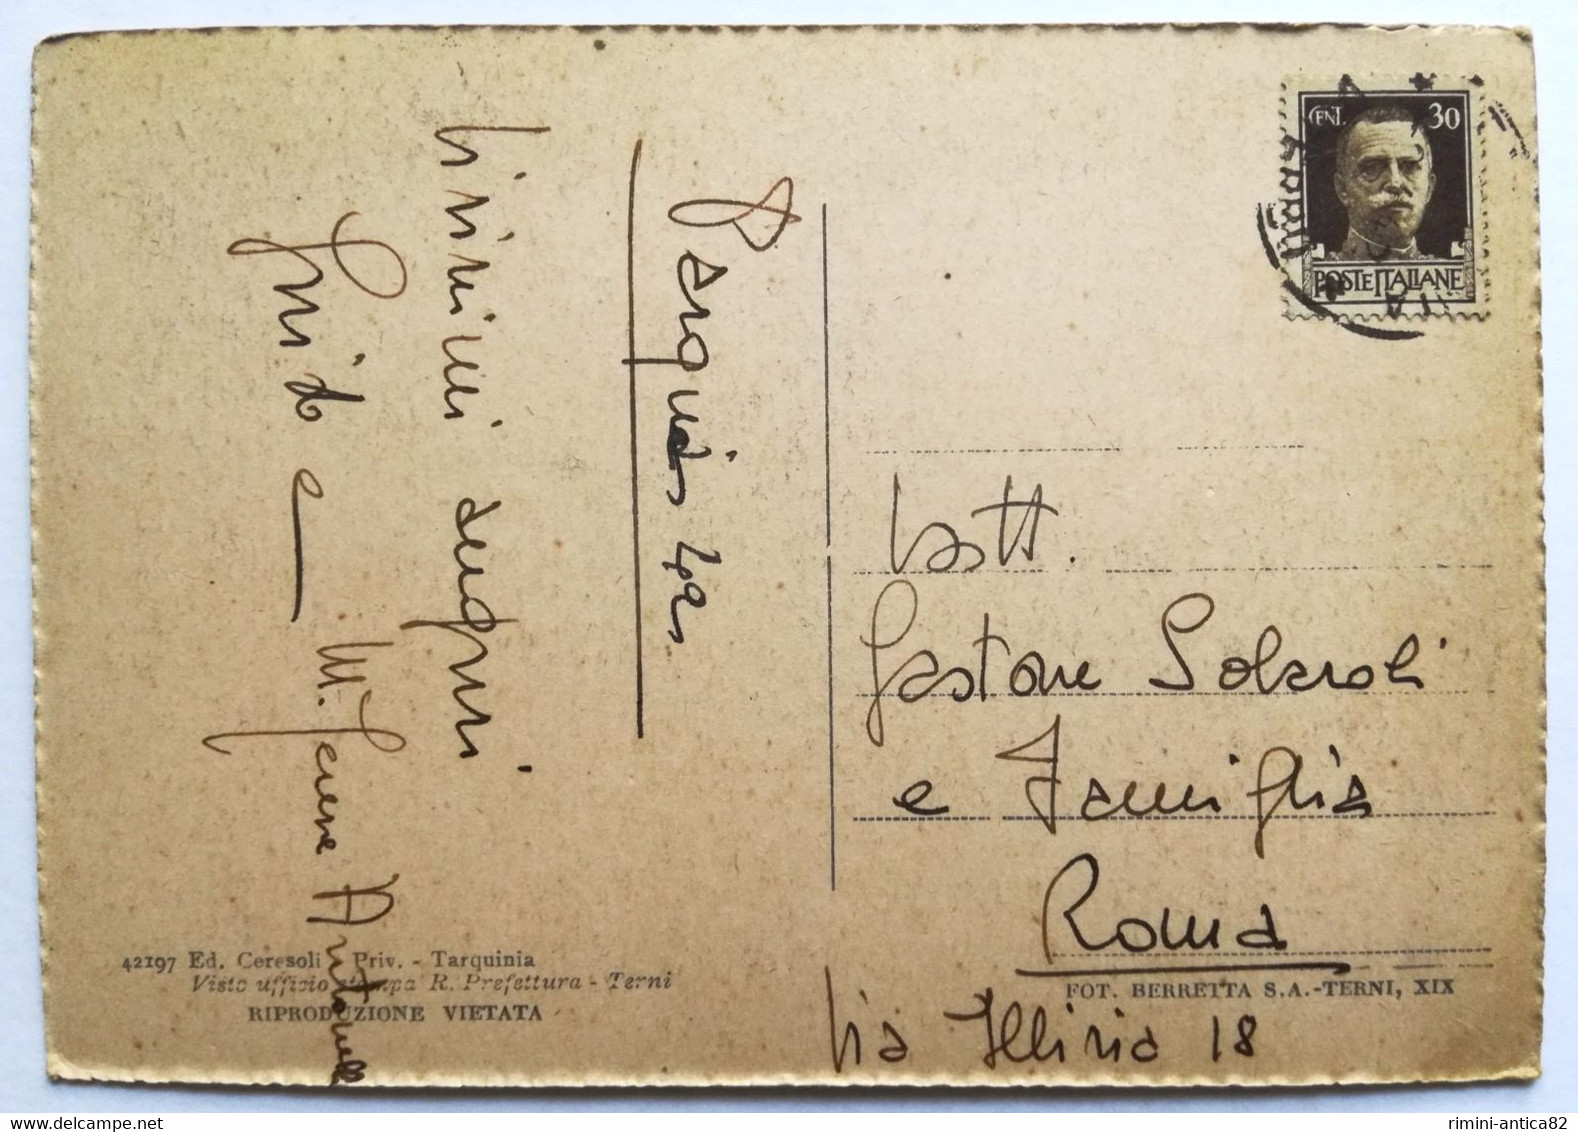 Pasqua 42
Vivissimi auguri
Guido e
M. Antonella
CENT. 30
POSTE ITALIANE
Dott.
Gastone Solaroli
e Famiglia
Roma
Via Illiria 18
42197 Ed. Ceresoli Priv. - Tarquinia
Visto ufficio stampa R. Prefettura - Terni
RIPRODUZIONE VIETATA
FOT. BERRETTA S.A.-TERNI, XIX
rimini-antica82